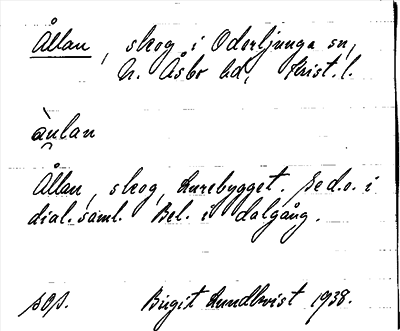 Ållan, skog i Oderljunga sn,
N. Åsbo hd, Krist. l.
àulan
Ållan, skog, Hurebygget. Se d.o. i
dial. saml. Bel. i dalgång.
Birgit Lundkvist 1938.